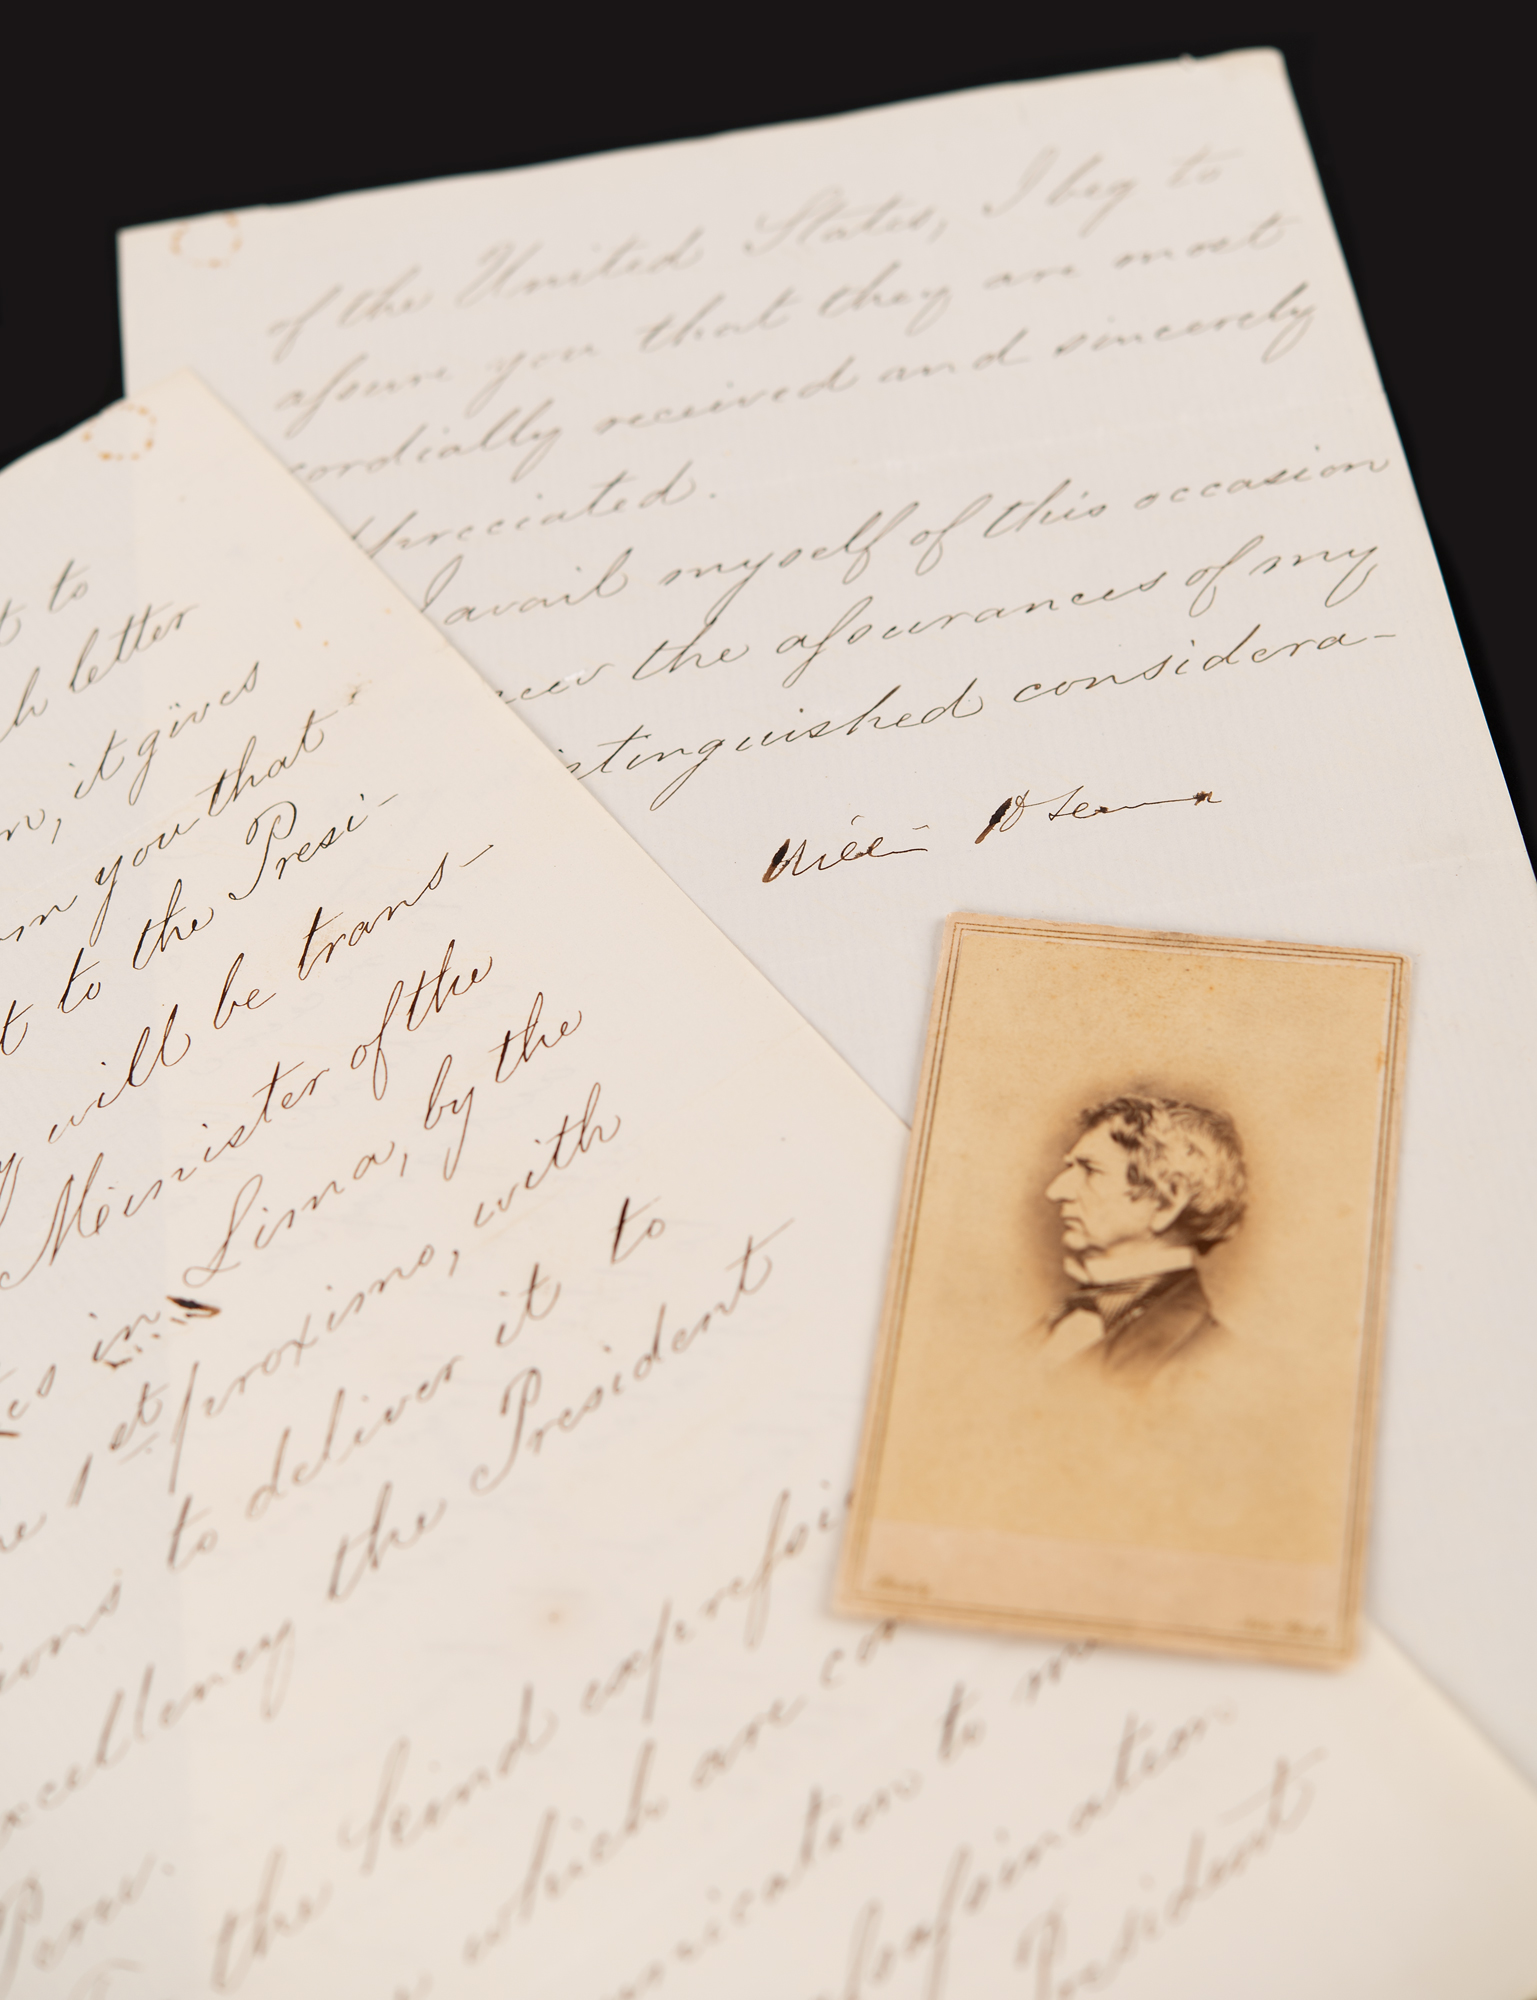 of the United States, I beg to
assure you that they are most
cordially received and sincerely
appreciated.
I avail myself of this occasion
new the assurances of my
istinguished considera-
t to
h letter
n, it gives
m you that
t to the Presi-
y will be trans-
Minister of the
es in Lima, by the
e 1st proximo, with
ions to deliver it to
xcellency the President
Peru.
the kind expressi
which are co
unication to m
assassination
President